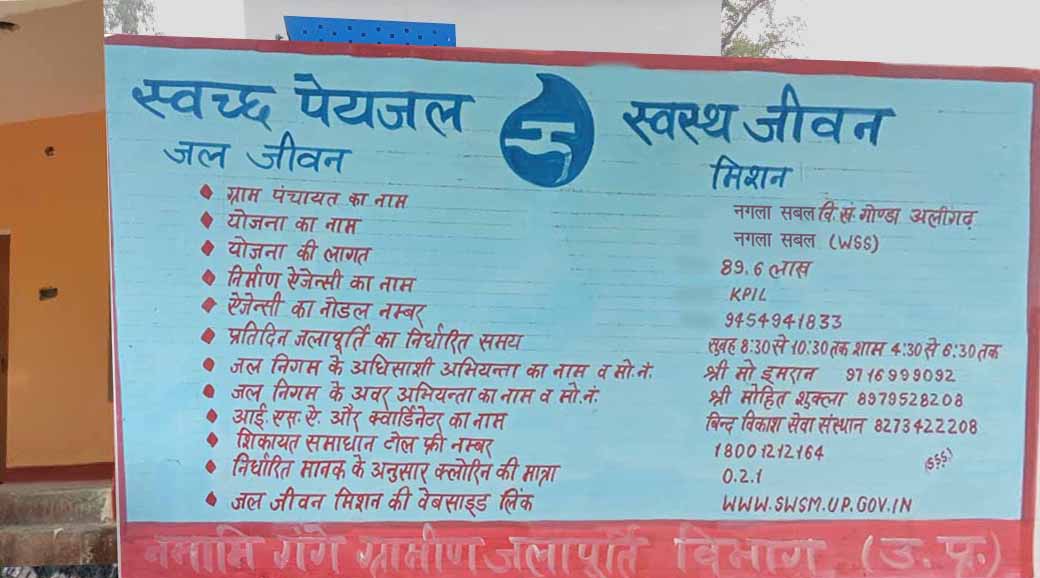 स्वच्छ पेयजल स्वस्थ जीवन
जल जीवन मिशन
ग्राम पंचायत का नाम नगला सबल वि.खं. गोण्डा अलीगढ़
योजना का नाम नगला सबल (WSS)
योजना की लागत 89.6 लाख
निर्माण ऐजेन्सी का नाम KPIL
ऐजेन्सी का नोडल नम्बर 9454941833
प्रतिदिन जलापूर्ति का निर्धारित समय सुबह 8:30 से 10:30 तक शाम 4:30 से 6:30 तक
जल निगम के अधिसाशी अभियन्ता का नाम व मो.नं. श्री मो इमरान 9716999092
जल निगम के अवर अभियन्ता का नाम व मो.नं. श्री मोहित शुक्ला 8979528208
आई.एस.ऐ. और क्वार्डिनेटर का नाम बिन्द विकाश सेवा संस्थान 8273422208
शिकायत समाधान टोल फ्री नम्बर 18001212164
(SSS)
निर्धारित मानक के अनुसार क्लोरिन की मात्रा 0.2.1
जल जीवन मिशन की वेबसाइड लिंक WWW.SWSM.UP.GOV.IN
नमामि गंगे ग्रामीण जलापूर्ति विभाग (उ.प्र.)